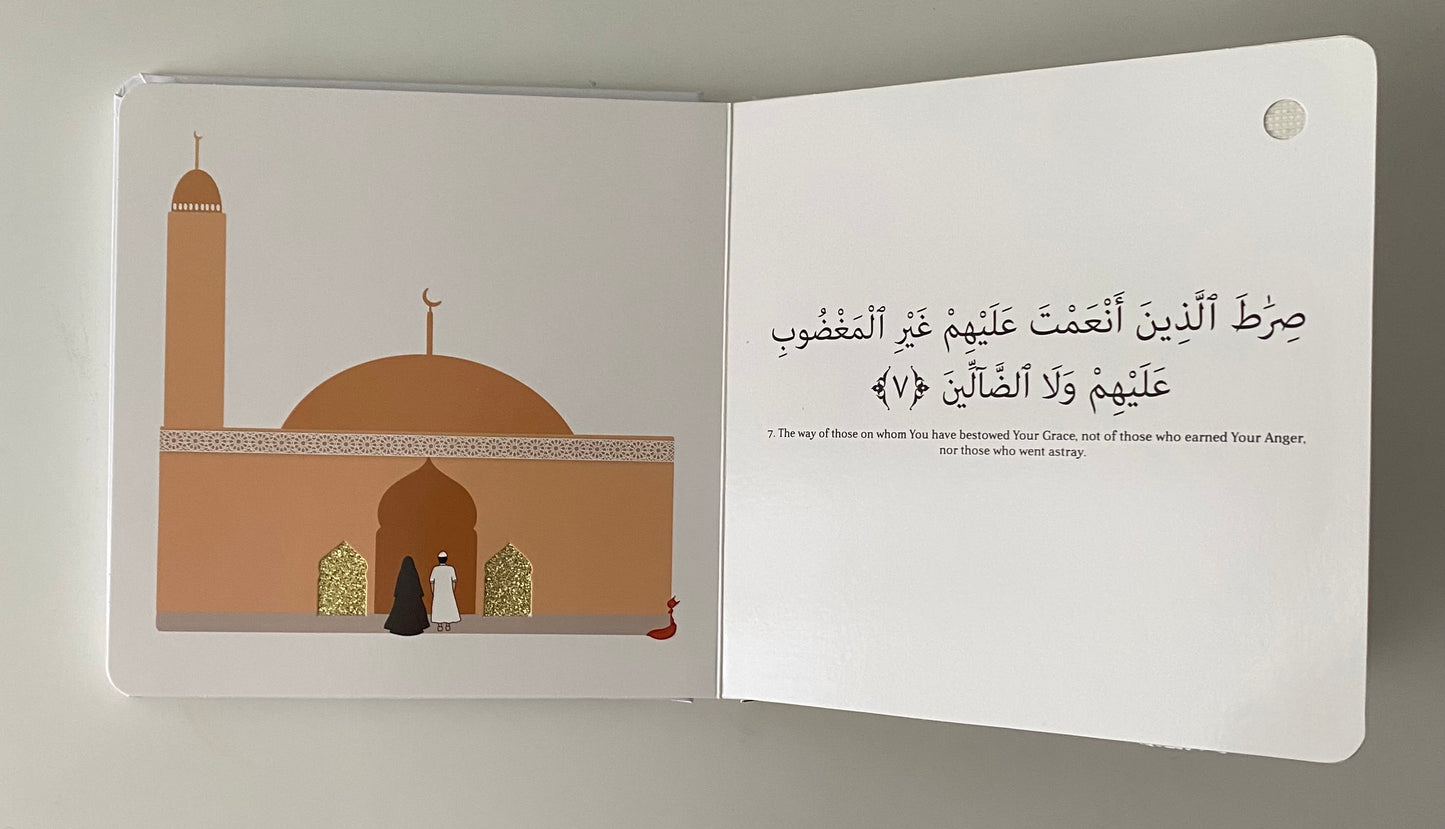 صِرَٰطَ ٱلَّذِينَ أَنْعَمْتَ عَلَيْهِمْ غَيْرِ ٱلْمَغْضُوبِ
عَلَيْهِمْ وَلَا ٱلضَّآلِّينَ ﴿٧﴾
7. The way of those on whom You have bestowed Your Grace, not of those who earned Your Anger,
nor those who went astray.